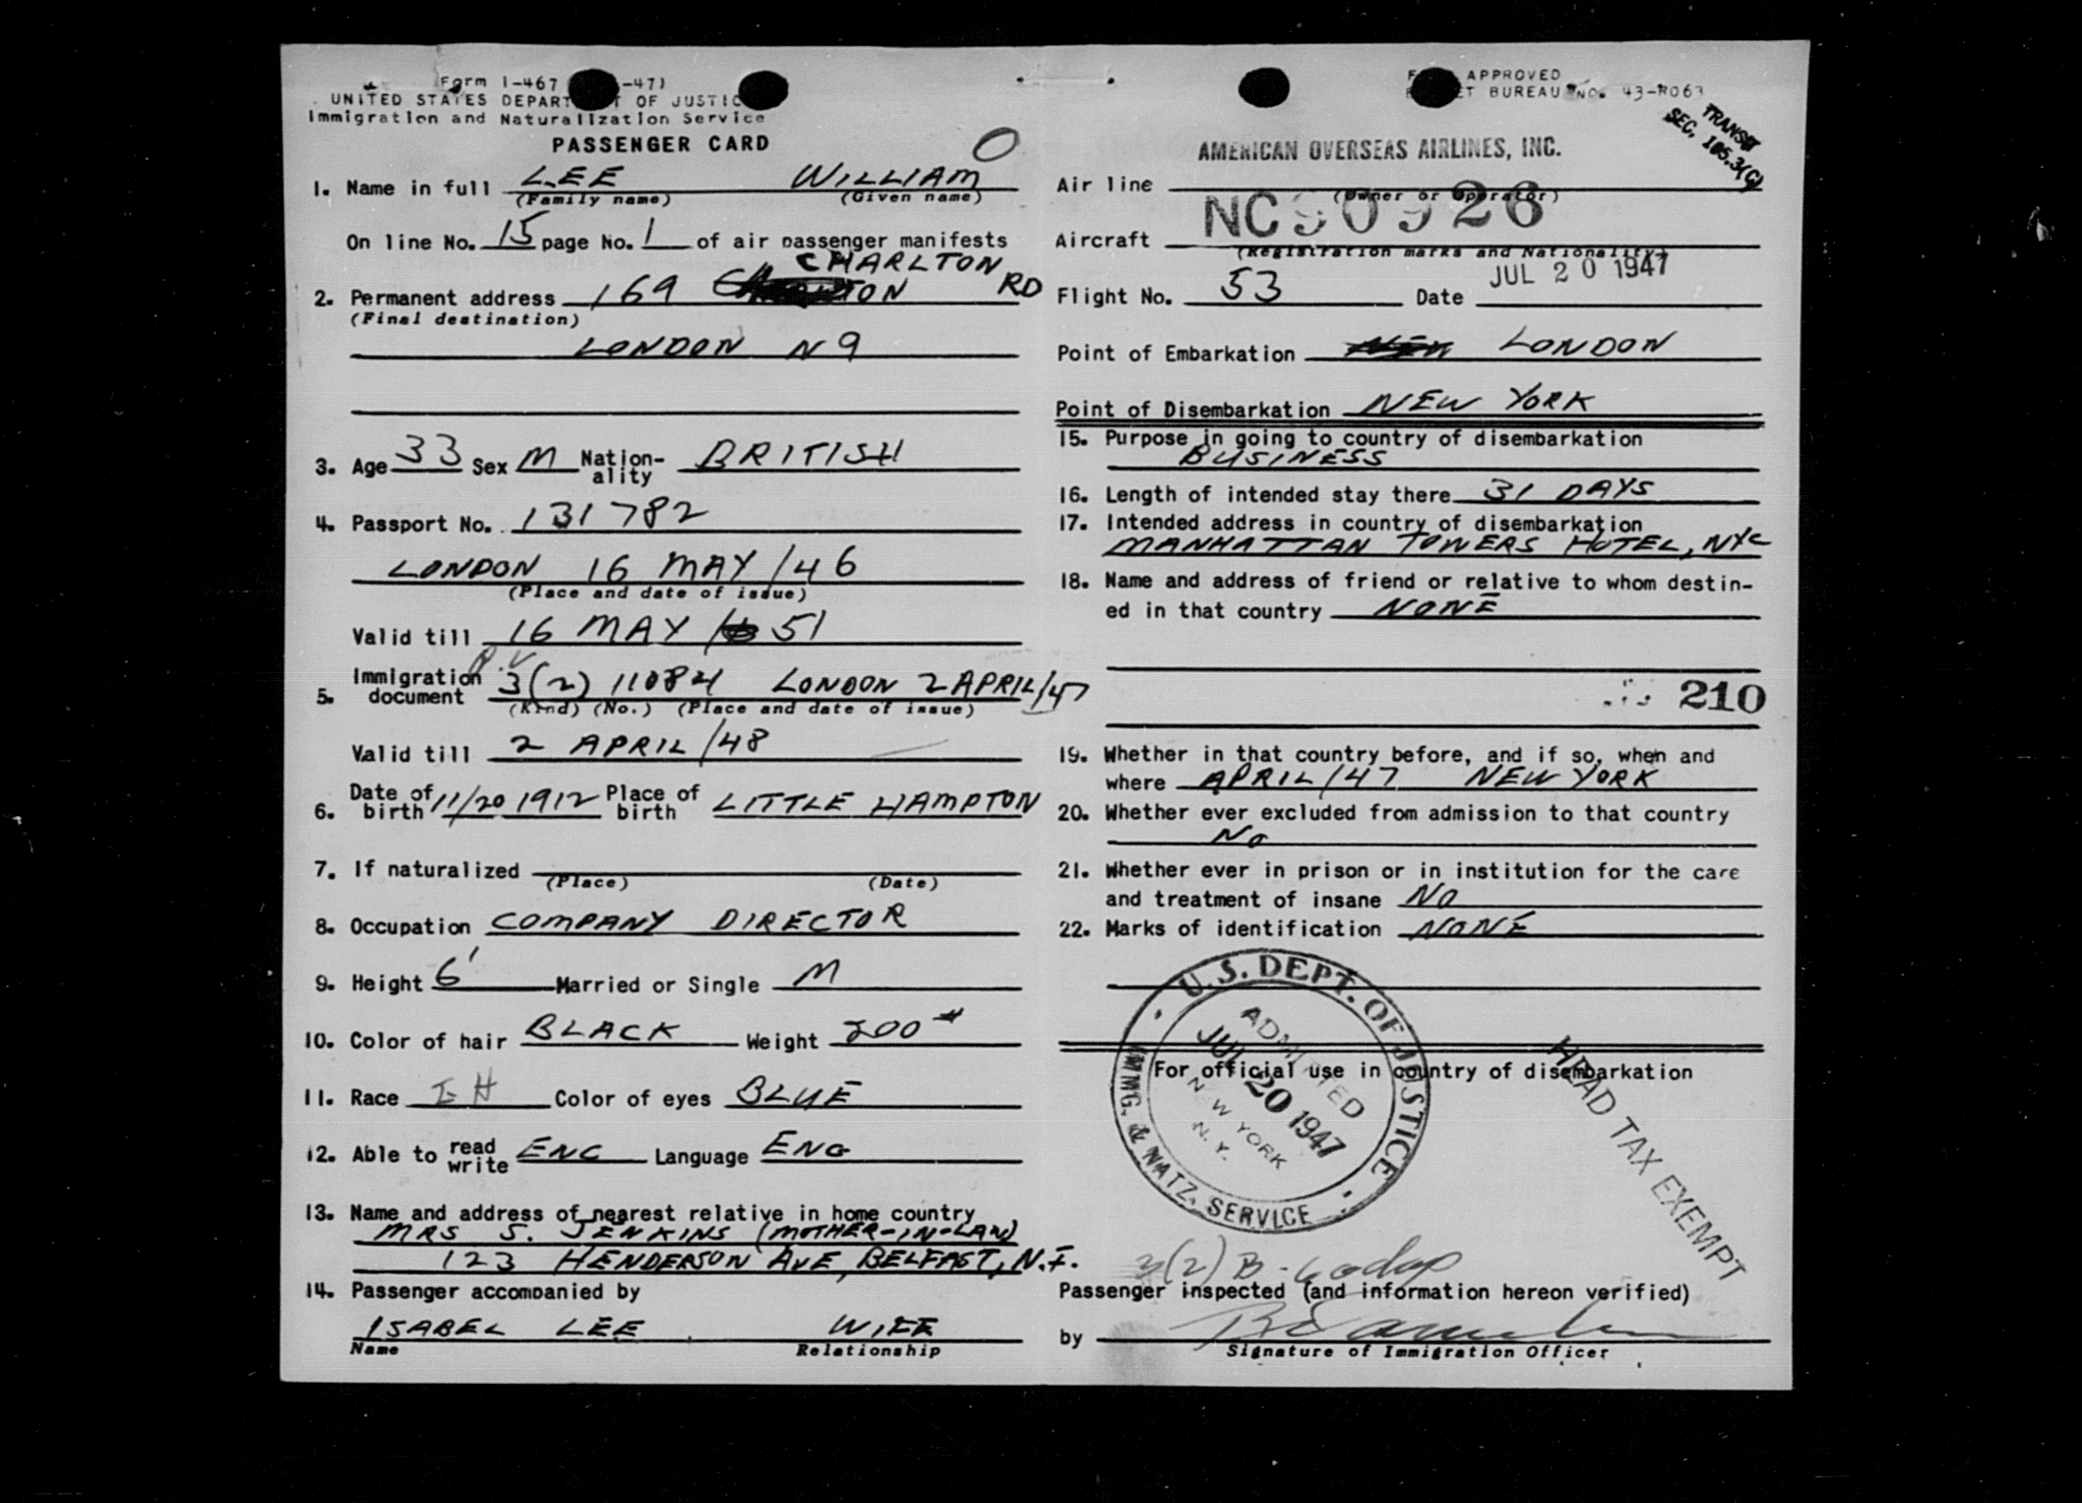 Form I-467 -47)
UNITED STATES DEPART T OF JUSTIC
Immigration and Naturalization Service
PASSENGER CARD
O
1. Name in full LEE WILLIAM
(Family name) (Given name)
On line No. 15 page No. 1 of air passenger manifests
CHARLTON
2. Permanent address 169 TON RD
(Final destination)
LONDON N9
3. Age 33 Sex M Nation-ality BRITISH
4. Passport No. 131782
LONDON 16 MAY/46
(Place and date of issue)
Valid till 16 MAY/51
P.V
5. Immigration document 3(2) 11084 LONDON 2 APRIL/47
(Kind) (No.) (Place and date of issue)
Valid till 2 APRIL/48
6. Date of birth 11/20 1912 Place of birth LITTLE HAMPTON
7. If naturalized
(Place) (Date)
8. Occupation COMPANY DIRECTOR
9. Height 6' Married or Single M
10. Color of hair BLACK Weight 200#
11. Race Color of eyes BLUE
12. Able to read write ENG Language ENG
13. Name and address of nearest relative in home country
MRS S. JENKINS (MOTHER-IN-LAW)
123 HENDERSON AVE, BELFAST, N.I.
14. Passenger accompanied by
ISABEL LEE WIFE
Name Relationship
APPROVED
ET BUREAU NO. 43-R063
TRANSIT
SEC. 105.3(C)
AMERICAN OVERSEAS AIRLINES, INC.
Air line
(Owner or Operator)
Aircraft NC90926
(Registration marks and Nationality)
Flight No. 53 Date JUL 20 1947
Point of Embarkation NEW LONDON
Point of Disembarkation NEW YORK
15. Purpose in going to country of disembarkation
BUSINESS
16. Length of intended stay there 31 DAYS
17. Intended address in country of disembarkation
MANHATTAN TOWERS HOTEL, NYC
18. Name and address of friend or relative to whom destin-
ed in that country NONE
210
19. Whether in that country before, and if so, when and
where APRIL/47 NEW YORK
20. Whether ever excluded from admission to that country
NO
21. Whether ever in prison or in institution for the care
and treatment of insane NO
22. Marks of identification NONE
For official use in country of disembarkation
U.S. DEPT. OF JUSTICE
ADMITTED
JUL 20 1947
NEW YORK
N. Y.
IMMG. & NATZ. SERVICE
HEAD TAX EXEMPT
3(2) B
Passenger inspected (and information hereon verified)
by
Signature of Immigration Officer